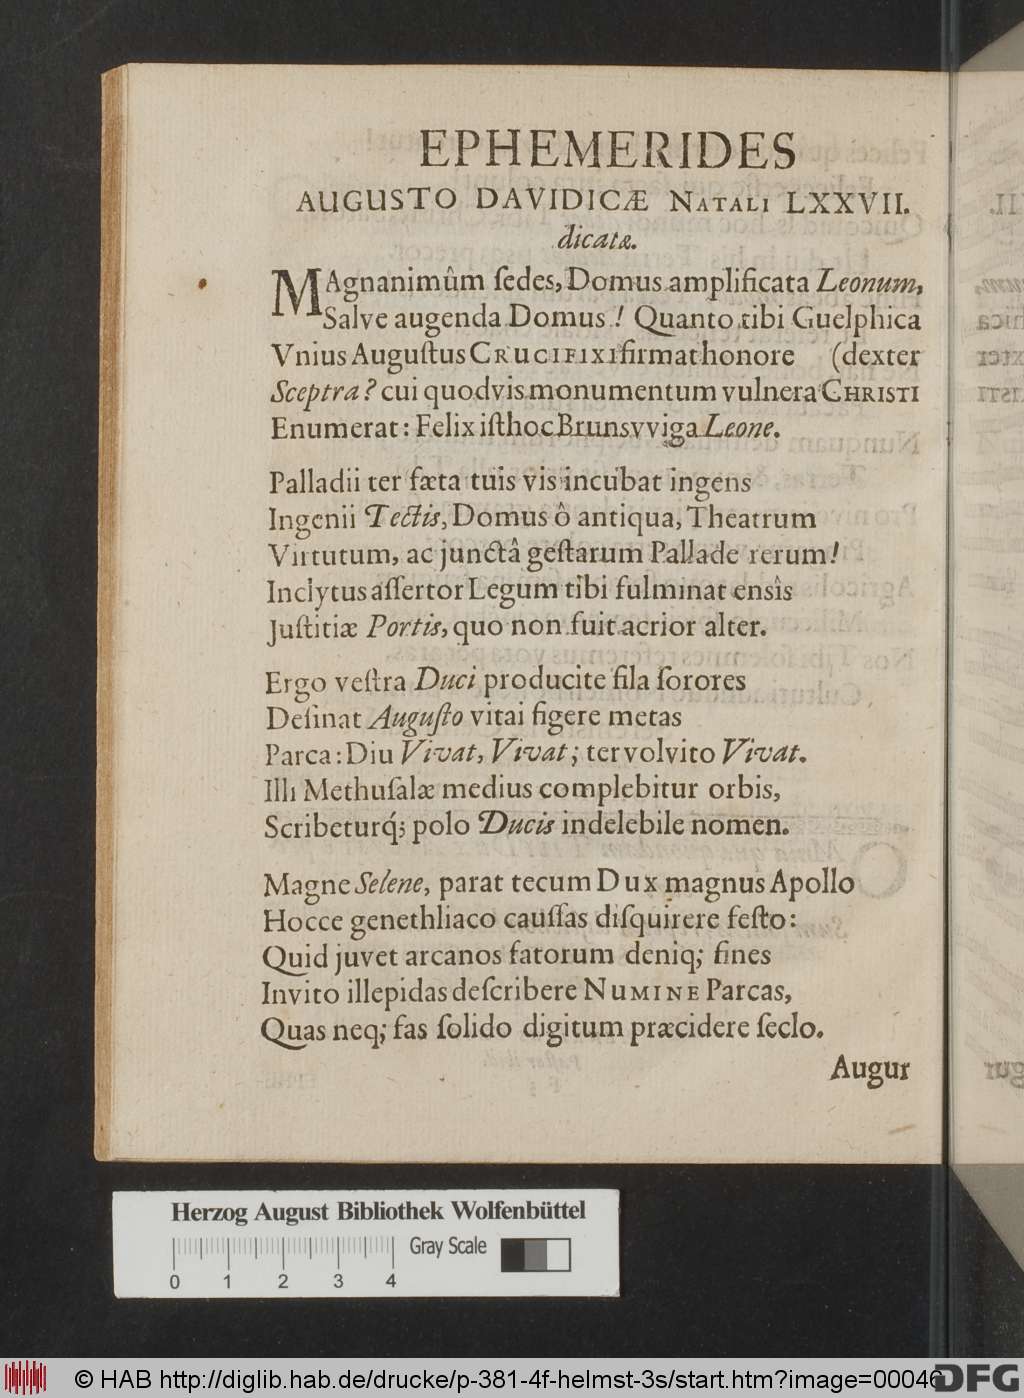 EPHEMERIDES
AUGUSTO DAVIDICÆ NATALI LXXVII.
dicatæ.
MAgnanimûm ſedes, Domus amplificata Leonum,
Salve augenda Domus! Quanto tibi Guelphica
Vnius Auguſtus CRUCIFIXI firmat honore (dexter
Sceptra? cui quodvis monumentum vulnera CHRISTI
Enumerat: Felix iſthoc Brunsvviga Leone.
Palladii ter fæta tuis vis incubat ingens
Ingenii Tectis, Domus ô antiqua, Theatrum
Virtutum, ac junctâ geſtarum Pallade rerum!
Inclytus aſſertor Legum tibi fulminat ensîs
Juſtitiæ Portis, quo non fuit acrior alter.
Ergo veſtra Duci producite fila ſorores
Deſinat Auguſto vitai figere metas
Parca: Diu Vivat, Vivat; ter volvito Vivat.
Illi Methuſalæ medius complebitur orbis,
Scribeturq́; polo Ducis indelebile nomen.
Magne Selene, parat tecum Dux magnus Apollo
Hocce genethliaco cauſſas diſquirere feſto:
Quid juvet arcanos fatorum deniq; fines
Invito illepidas deſcribere NUMINE Parcas,
Quas neq; fas ſolido digitum præcidere ſeclo.
Augur
Herzog August Bibliothek Wolfenbüttel
Gray Scale
0 1 2 3 4
© HAB http://diglib.hab.de/drucke/p-381-4f-helmst-3s/start.htm?image=00046
DFG